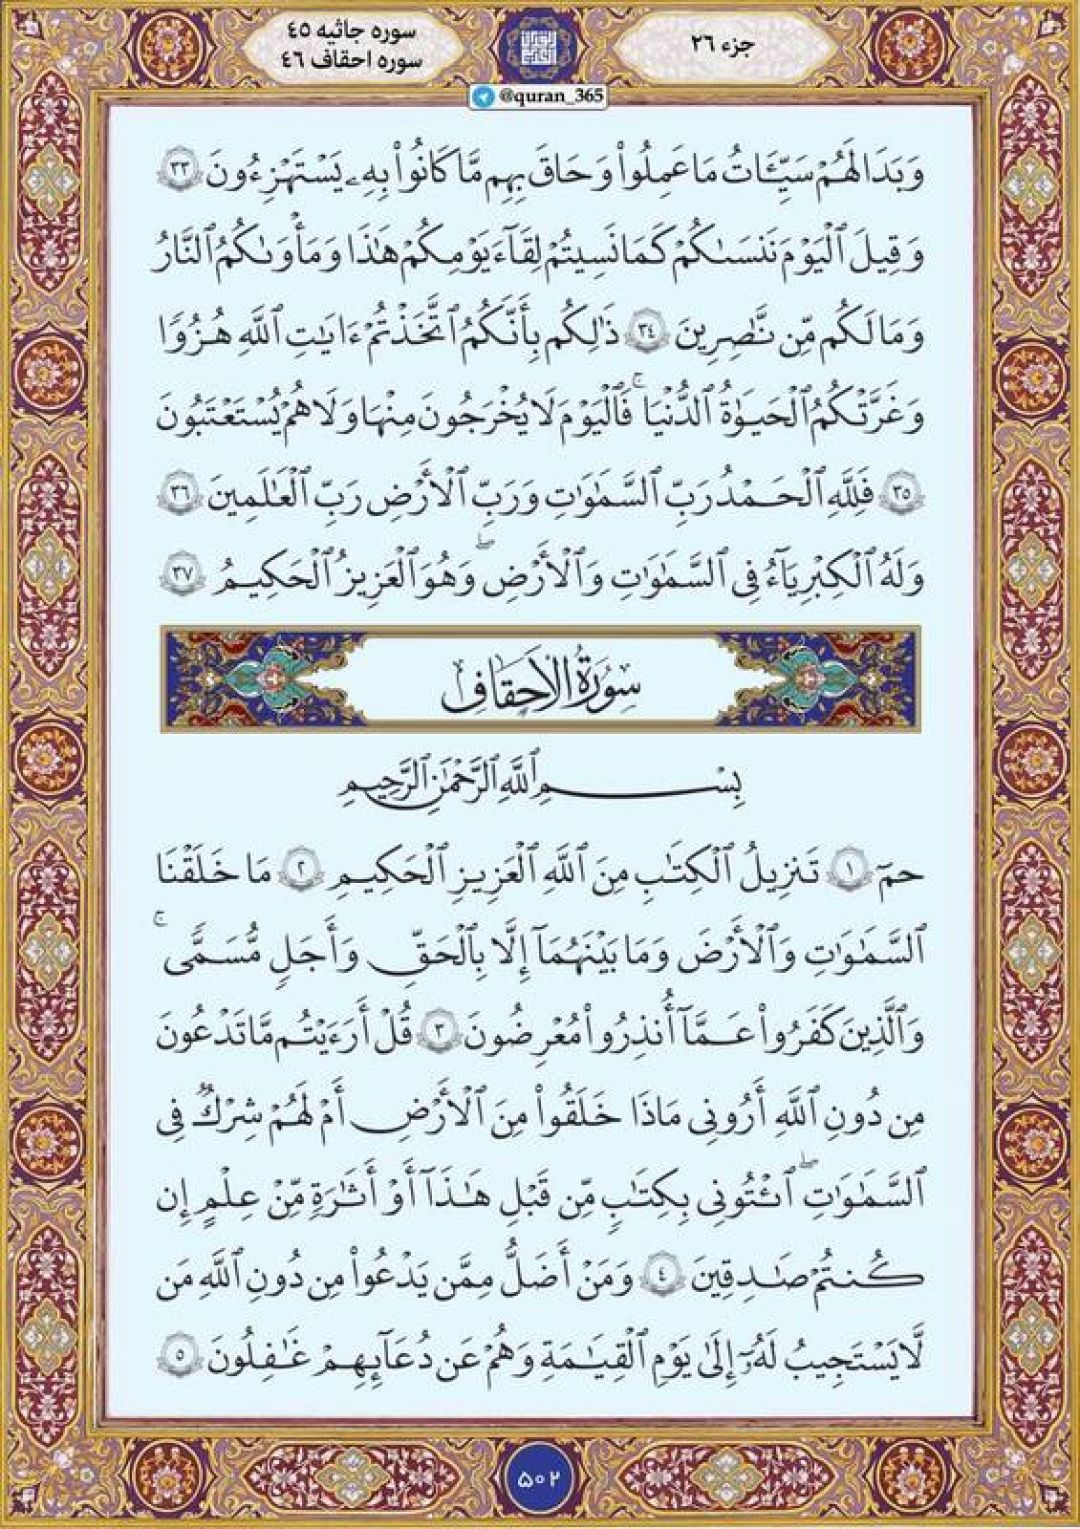 سوره جاثیه ۴۵
سوره احقاف ۴۶
جزء ۲۶
@quran_365
وَبَدَا لَهُمْ سَيِّـَٔاتُ مَا عَمِلُوا۟ وَحَاقَ بِهِم مَّا كَانُوا۟ بِهِۦ يَسْتَهْزِءُونَ ٣٣
وَقِيلَ ٱلْيَوْمَ نَنسَىٰكُمْ كَمَا نَسِيتُمْ لِقَآءَ يَوْمِكُمْ هَٰذَا وَمَأْوَىٰكُمُ ٱلنَّارُ
وَمَا لَكُم مِّن نَّٰصِرِينَ ٣٤ ذَٰلِكُم بِأَنَّكُمُ ٱتَّخَذْتُمْ ءَايَٰتِ ٱللَّهِ هُزُوًا
وَغَرَّتْكُمُ ٱلْحَيَوٰةُ ٱلدُّنْيَا ۚ فَٱلْيَوْمَ لَا يُخْرَجُونَ مِنْهَا وَلَا هُمْ يُسْتَعْتَبُونَ
٣٥ فَلِلَّهِ ٱلْحَمْدُ رَبِّ ٱلسَّمَٰوَٰتِ وَرَبِّ ٱلْأَرْضِ رَبِّ ٱلْعَٰلَمِينَ ٣٦
وَلَهُ ٱلْكِبْرِيَآءُ فِى ٱلسَّمَٰوَٰتِ وَٱلْأَرْضِ ۖ وَهُوَ ٱلْعَزِيزُ ٱلْحَكِيمُ ٣٧
سُورَةُ الْأَحْقَافِ
بِسْمِ ٱللَّهِ ٱلرَّحْمَٰنِ ٱلرَّحِيمِ
حمٓ ١ تَنزِيلُ ٱلْكِتَٰبِ مِنَ ٱللَّهِ ٱلْعَزِيزِ ٱلْحَكِيمِ ٢ مَا خَلَقْنَا
ٱلسَّمَٰوَٰتِ وَٱلْأَرْضَ وَمَا بَيْنَهُمَآ إِلَّا بِٱلْحَقِّ وَأَجَلٍ مُّسَمًّى ۚ
وَٱلَّذِينَ كَفَرُوا۟ عَمَّآ أُنذِرُوا۟ مُعْرِضُونَ ٣ قُلْ أَرَءَيْتُم مَّا تَدْعُونَ
مِن دُونِ ٱللَّهِ أَرُونِى مَاذَا خَلَقُوا۟ مِنَ ٱلْأَرْضِ أَمْ لَهُمْ شِرْكٌ فِى
ٱلسَّمَٰوَٰتِ ۖ ٱئْتُونِى بِكِتَٰبٍ مِّن قَبْلِ هَٰذَآ أَوْ أَثَٰرَةٍ مِّنْ عِلْمٍ إِن
كُنتُمْ صَٰدِقِينَ ٤ وَمَنْ أَضَلُّ مِمَّن يَدْعُوا۟ مِن دُونِ ٱللَّهِ مَن
لَّا يَسْتَجِيبُ لَهُۥٓ إِلَىٰ يَوْمِ ٱلْقِيَٰمَةِ وَهُمْ عَن دُعَآئِهِمْ غَٰفِلُونَ ٥
۵۰۲